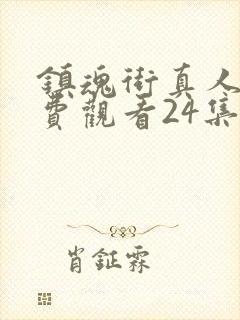 鎮魂街真人
費觀看24集
肖鉦霖